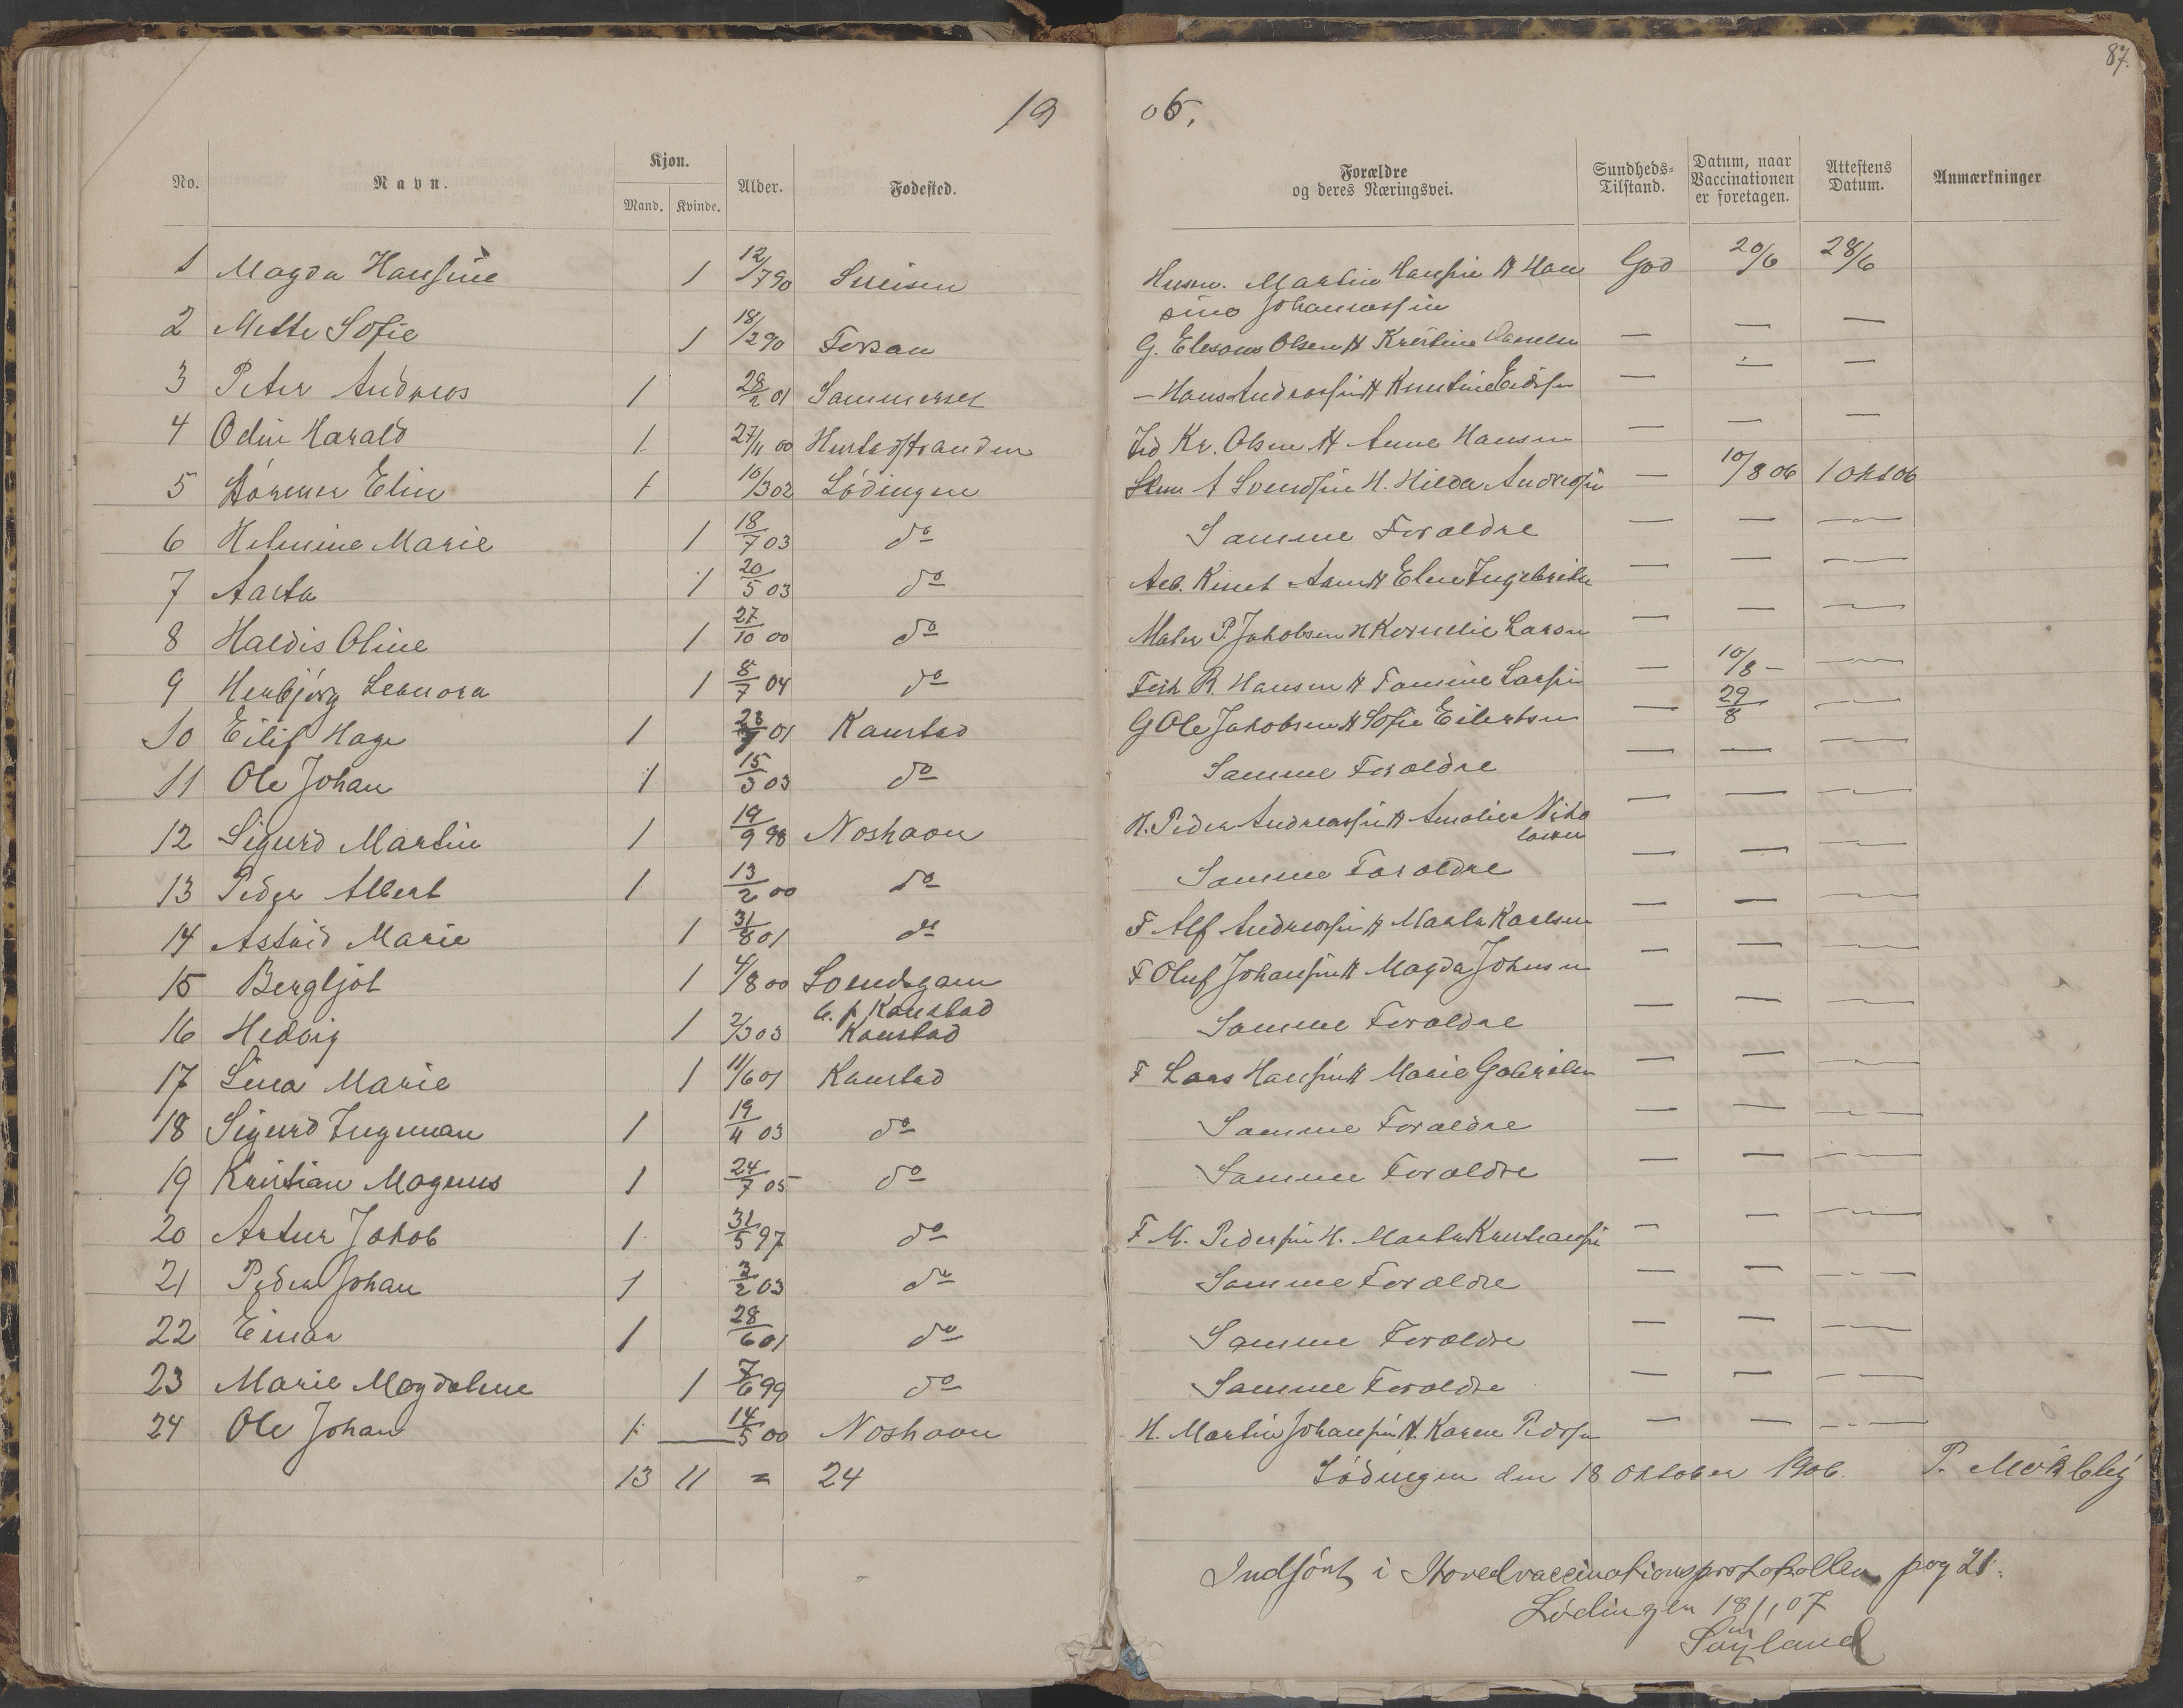 87.
19 06.
No. Navn. Kjøn. Mand. Kvinde. Alder. Fødested. Forældre og deres Næringsvei. Sundheds-Tilstand. Datum, naar Vaccinationen er foretagen. Attestens Datum. Anmærkninger
1 Magda Hansine 1 12/7 90 Husm. Martin Hansen H Han God 20/6 28/6
sine Johannessen
2 Mette Sofie 1 18/2 90 G. Olsen H Kristine — — —
3 Peter Andreas 1 28/2 01 Sammesset — Hans Andreassen H — — —
4 Odin Harald 1 27/11 00 Kr. Olsen H Anne Hansen — — —
5 Elin 1 10/3 02 Lödingen A Svendsen H. Hilda Andreassen — 10/8 06 1 Okt 06
6 Helmine Marie 1 18/7 03 do Samme Foræeldre — — —
7 Aasta 1 20/5 03 do Arb. H Elen Ingebrigtsen — — —
8 Haldis Oline 1 27/10 00 do Maler P. Jakobsen H Kornelie Larsen — — —
9 Herbjörg Leonora 1 8/7 04 do Fisk R. Hansen H Larsen — 10/8 — —
10 Eilif Hage 1 01 Kanstad G Ole Jakobsen H Sofie Eilertsen — 29/8 —
11 Ole Johan 1 15/3 03 do Samme Forældre — — —
12 Sigurd Martin 1 19/9 98 Noshaon H. Peder Andreassen H Amalie Niko — — —
laisen
13 Peder Albert 1 13/2 00 do Samme Forældre — — —
14 Astrid Marie 1 31/8 01 do F Alf Andreassen H Marta Karlsen — — —
15 Bergljot 1 4/8 00 F Oluf Johansen H Magda Johnsen — — —
Kanstad
16 Hedvig 1 2/3 03 Kanstad Samme Forældre — — —
17 Lina Marie 1 11/6 01 Kanstad F Lars Hansen H Marie Gabrielsen — — —
18 Sigurd Ingeman 1 19/4 03 do Samme Forældre — — —
19 Kristian Magnus 1 24/7 05 do Samme Forældre — — —
20 Artur Jakob 1 31/5 97 do F M. Pedersen H. Marta Kristiansen — — —
21 Peder Johan 1 3/2 03 do Samme Forældre — — —
22 Einar 1 28/6 01 do Samme Forældre — — —
23 Marie Magdalene 1 7/6 99 do Samme Forældre — — —
24 Ole Johan 1 14/5 00 Noshaon H. Martin Johansen H. Karen Pedersen — — —
13 11 = 24 Lödingen den 18 Oktober 1906. P. Mörkbly
Indfört i Hovedvaccinationsprotokollen pag 21.
Lödingen 18/1 07